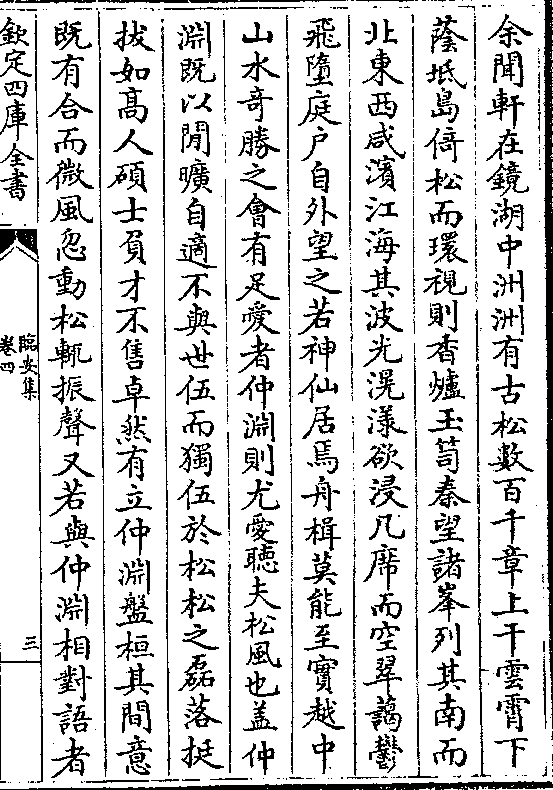 余聞軒在鏡湖中洲洲有古松數百千章上干雲霄下
蔭坻島倚松而環視則香爐玉笥秦望諸峯列其南而
北東西咸濱江海其波光滉漾欲浸几席而空翠藹鬱
飛墮庭户自外望之若神仙居焉舟楫莫能至實越中
山水竒勝之會有足愛者仲淵則尤愛聽夫松風也盖仲
淵既以閒曠自適不與世伍而獨伍於松松之磊落挺
拔如髙人碩士負才不售卓然有立仲淵盤桓其間意
既有合而微風忽動松輒振聲又若與仲淵相對語者
欽定四庫全書
臨安集
卷四
三